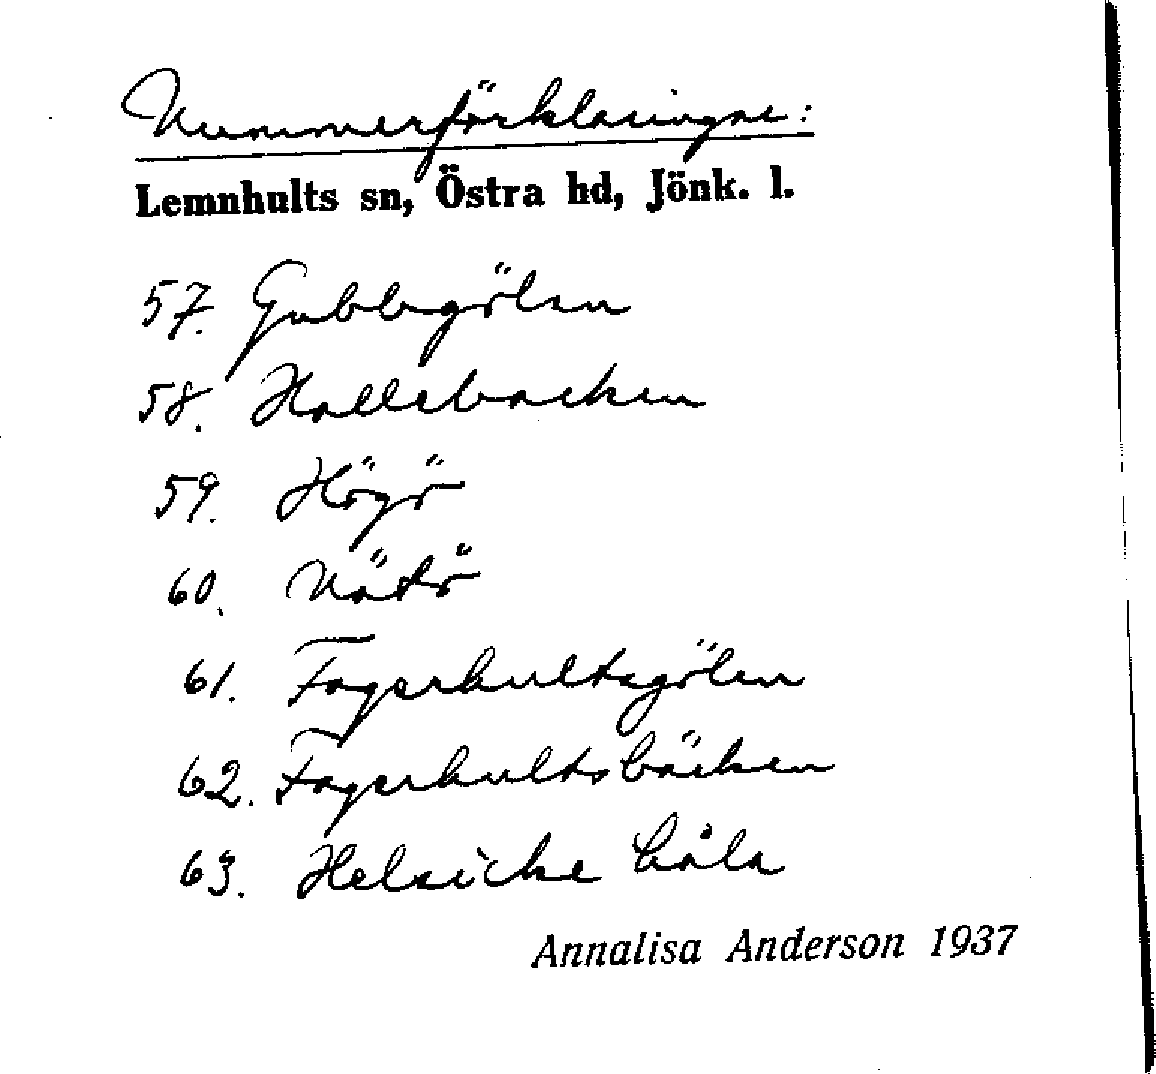 Nummerförklaringar:
Lemnhults sn, Östra hd, Jönk. l.
57. Gubbegölen
58. Hallebacken
59. Högö
60. Nötö
61. Fagerhultsgölen
62. Fagerhultsbäcken
63. håla
Annalisa Anderson 1937